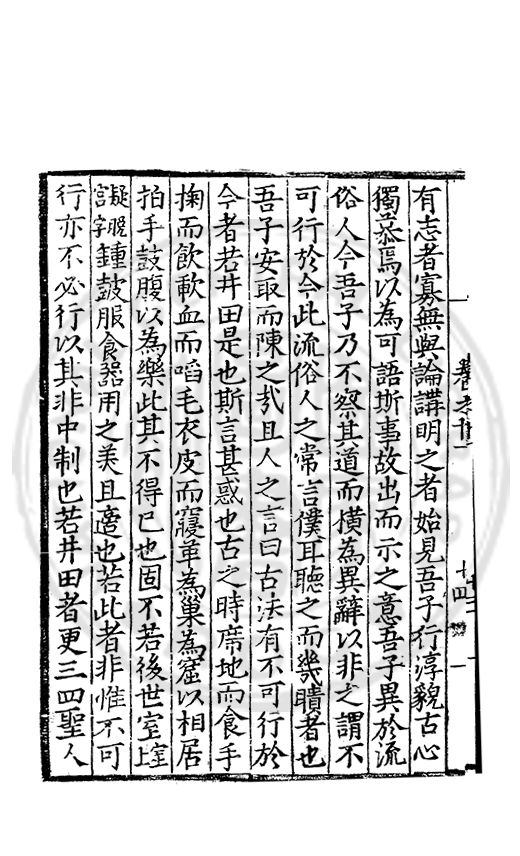 有志者寡無與論講明之者始見吾子行淳貌古心
獨恭焉以為可語斯事故出而示之意吾子異於流
俗人今吾子乃不察其道而橫為異辭以非之謂不
可行於今此流俗人之常言僕耳聽之而幾聵者也
吾子安取而陳之哉且人之言曰古法有不可行於
今者若井田是也斯言甚惑也古之時席地而食手
掬而飲歃血而啗毛衣皮而寢革為巢為窟以相居
拍手鼓腹以為樂此其不得已也固不若後世室
疑脫宮字鍾鼓服食器用之美且適也若此者非惟不可
行亦不必行以其非中制也若井田者更三四聖人